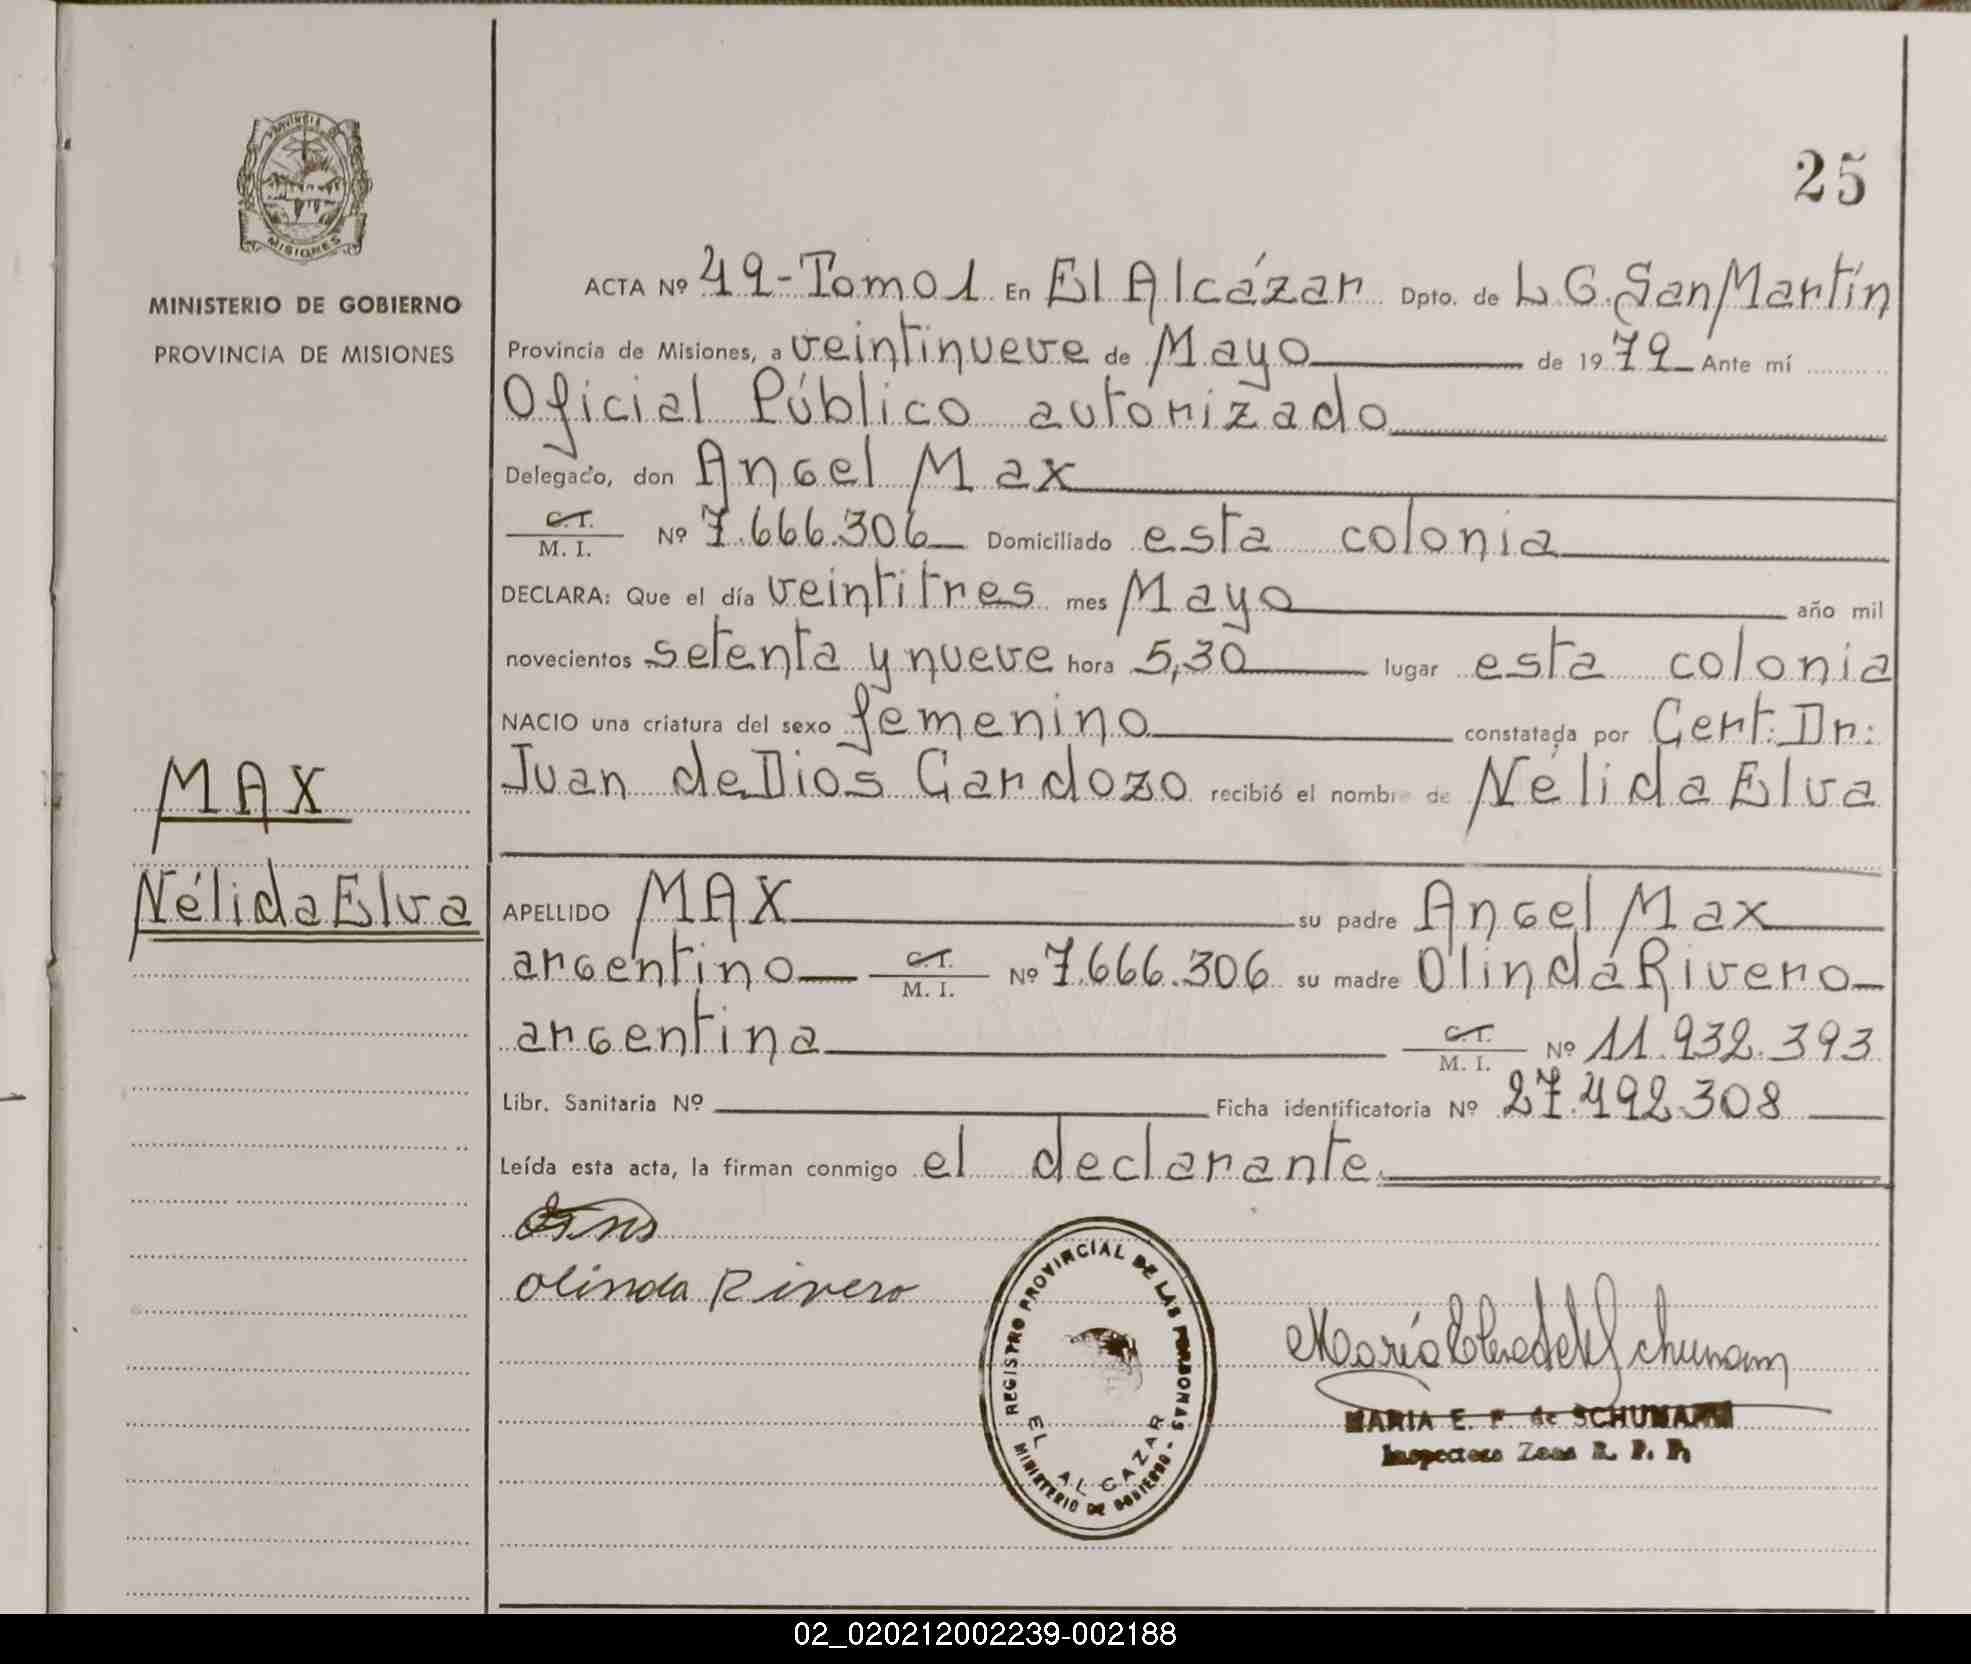 PROVINCIA DE
MISIONES
MINISTERIO DE GOBIERNO
PROVINCIA DE MISIONES
25
ACTA Nº 49-Tomo 1 En El Alcázar Dpto. de L G. San Martín
Provincia de Misiones, a veintinueve de Mayo de 1979 Ante mí
Oficial Público autorizado
Delegado, don Angel Max
C.I.
M. I. Nº 7.666.306 Domiciliado esta colonia
DECLARA: Que el día veintitres mes Mayo año mil
novecientos setenta y nueve hora 5,30 lugar esta colonia
NACIO una criatura del sexo femenino constatada por Cert. Dr:
Juan de Dios Cardozo recibió el nombre de Nélida Elva
MAX
Nélida Elva
APELLIDO MAX su padre Angel Max
argentino C.I.
M. I. Nº 7.666.306 su madre Olinda Rivero
argentina C.I.
M. I. Nº 11.932.393
Libr. Sanitaria Nº Ficha identificatoria Nº 27.492.308
Leída esta acta, la firman conmigo el declarante.
Olinda Rivero
REGISTRO PROVINCIAL DE LAS PERSONAS -
EL ALCAZAR
MINISTERIO DE GOBIERNO -
María de Schumann
MARIA E. F de SCHUMANN
Inspectora Zona R. P. P.
02_020212002239-002188